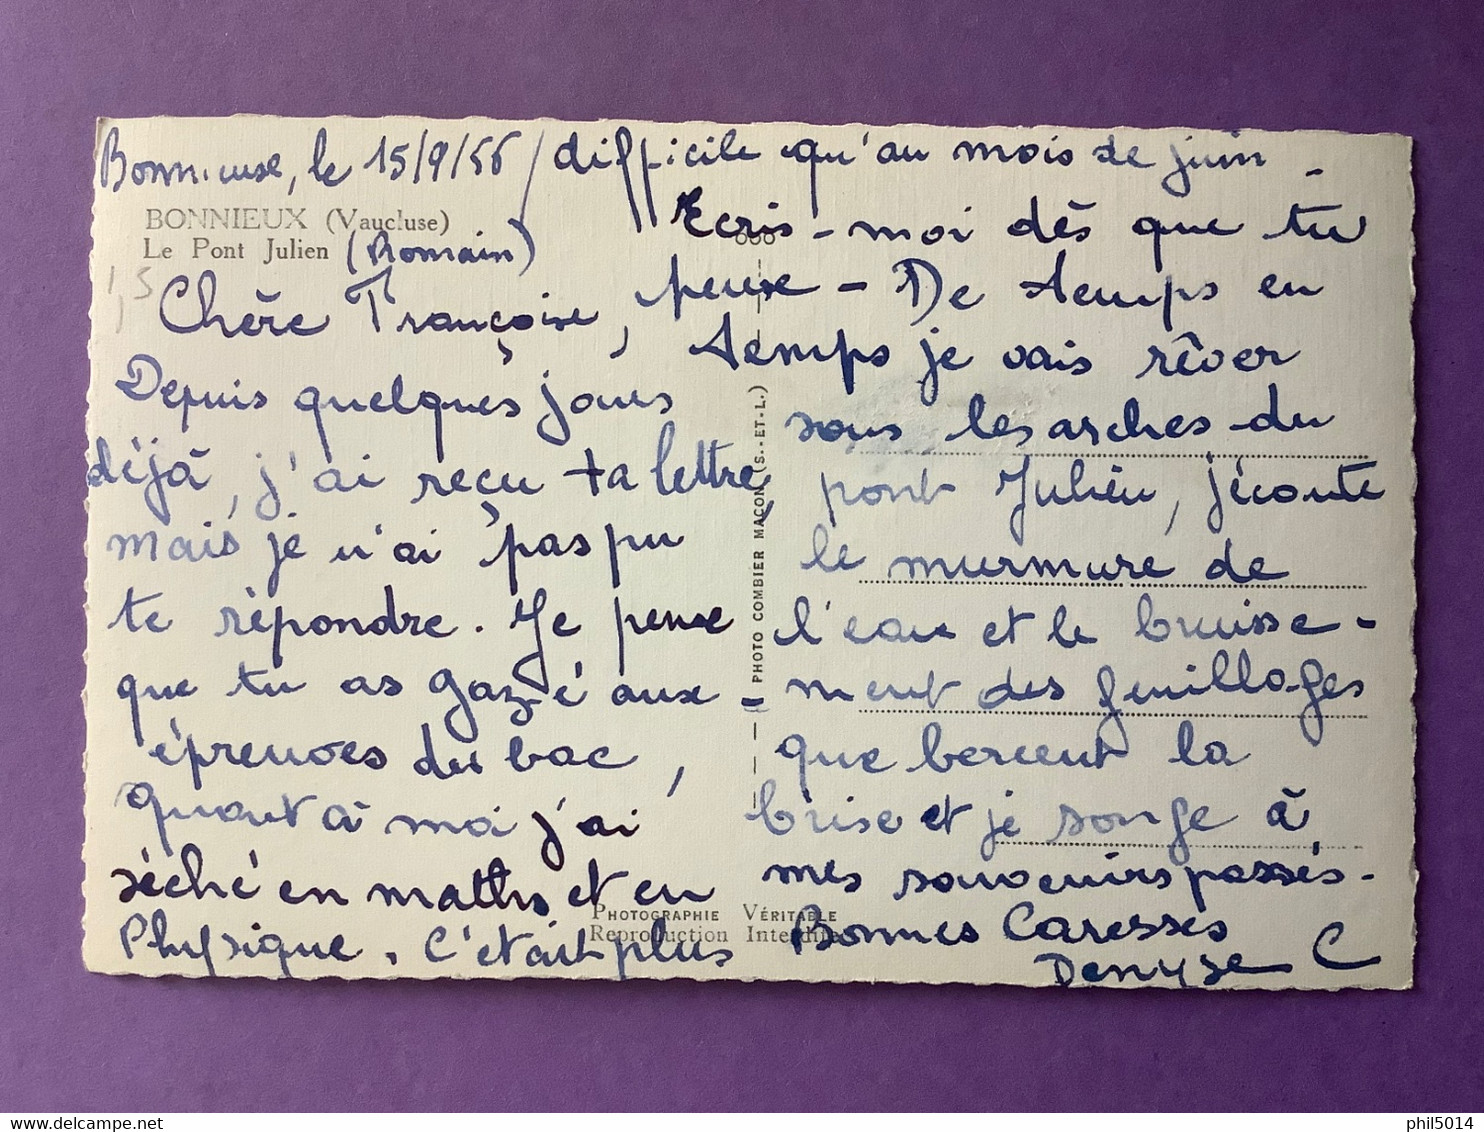 Bonnieux, le 15/9/56
BONNIEUX (Vaucluse)
Le Pont Julien (Romain)
1,5
Chère Françoise,
Depuis quelques jours
déjà, j'ai reçu ta lettre
mais je n'ai pas pu
te répondre. Je pense
que tu as gazé aux
épreuves du bac,
quant à moi j'ai
séché en maths et en
Physique. C'était plus
difficile qu'au mois de juin -
Ecris-moi dès que tu
peux - De temps en
temps je vais rêver
sous les arches du
pont Julien, j'écoute
le murmure de
l'eau et le bruisse-
ment des feuillages
que bercent la
brise et je songe à
mes souvenirs passés -
Bonnes Caresses
Denyse C
PHOTO COMBIER MACON (S.-ET-L.)
PHOTOGRAPHIE VÉRITABLE
Reproduction Interdite
delcampe.net
phil5014